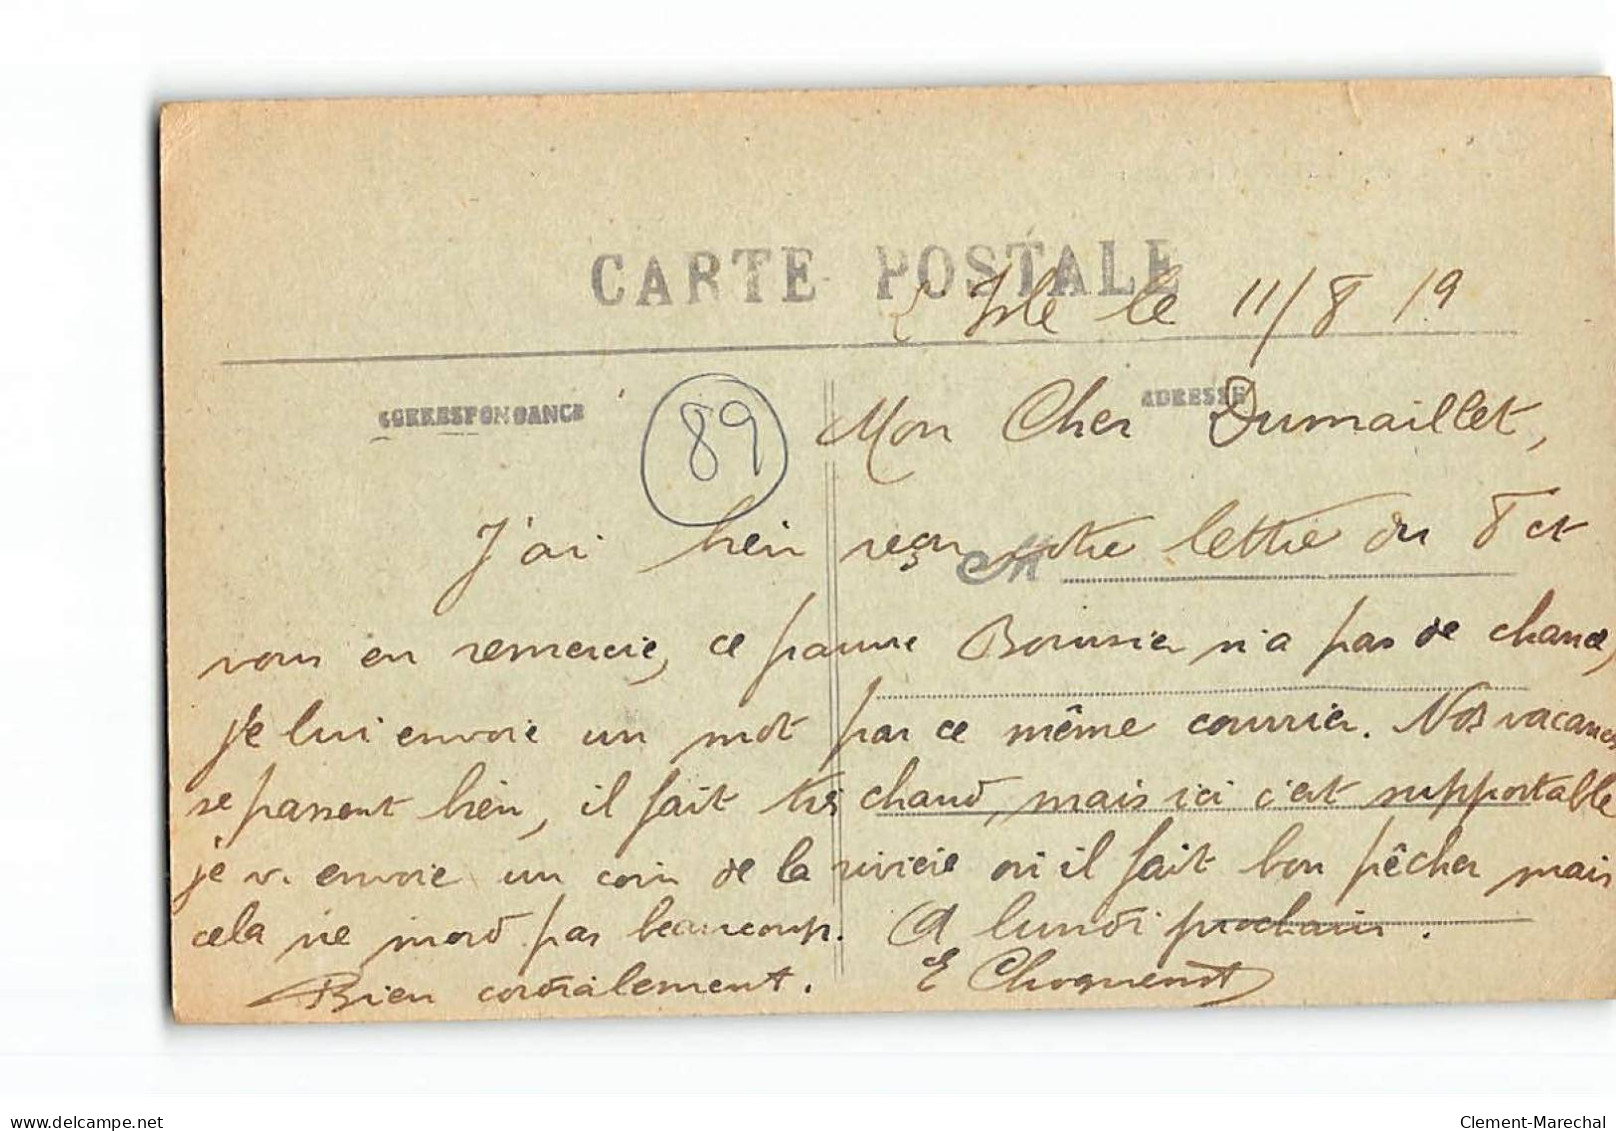 CARTE POSTALE
L'Isle le 11/8 19
CORRESPONDANCE
ADRESSE
89
Mon Cher Dumaillet,
J'ai bien reçu votre lettre du 8 et
M
vous en remercie, ce pauvre Boursier n'a pas de chance,
je lui envoie un mot par ce même courrier. Nos vacances
se passent bien, il fait très chaud, mais ici c'est supportable
je v. envoie un coin de la rivière où il fait bon pêcher mais
cela ne mord pas beaucoup. A lundi prochain.
Bien cordialement. E Choquenot
delcampe.net
Clement-Marechal